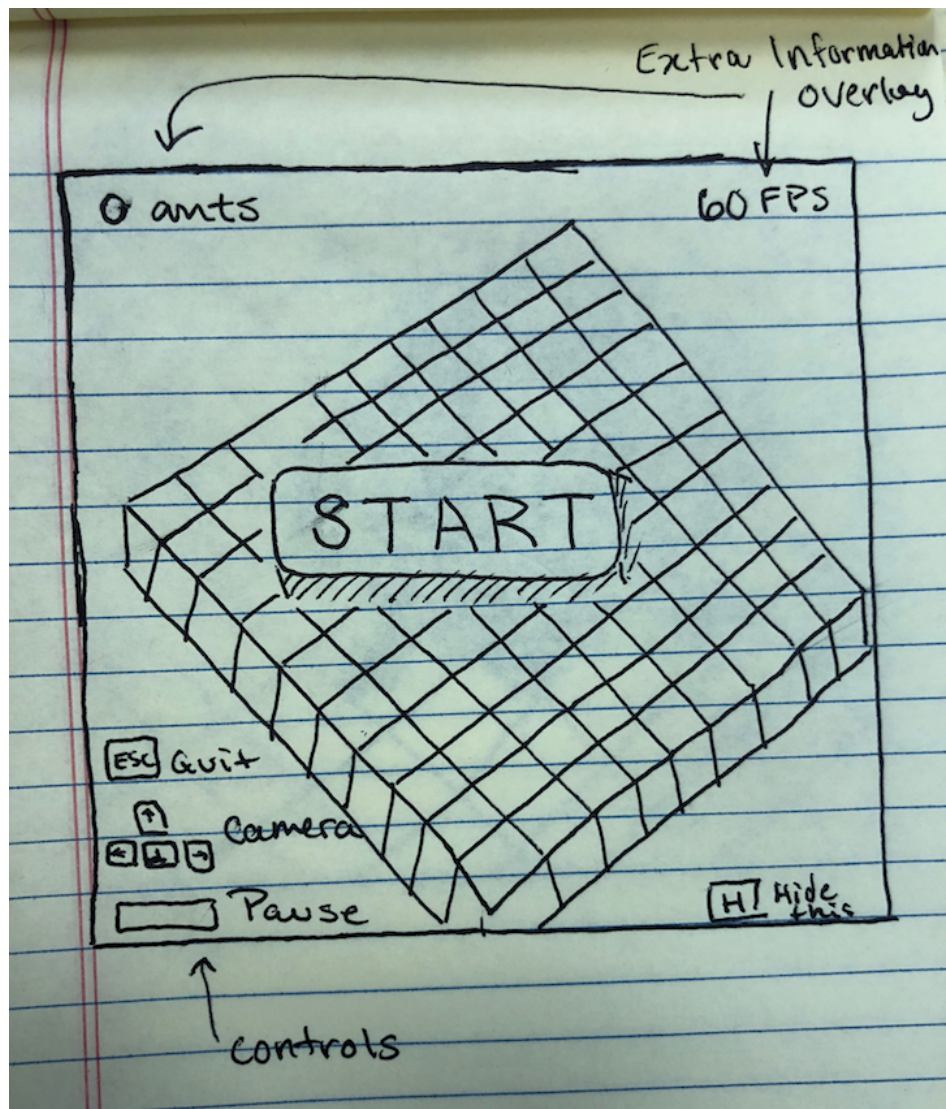 Extra Information
overlay
0 ants
60 FPS
START
ESC Quit
Camera
Pause
H Hide
this
controls